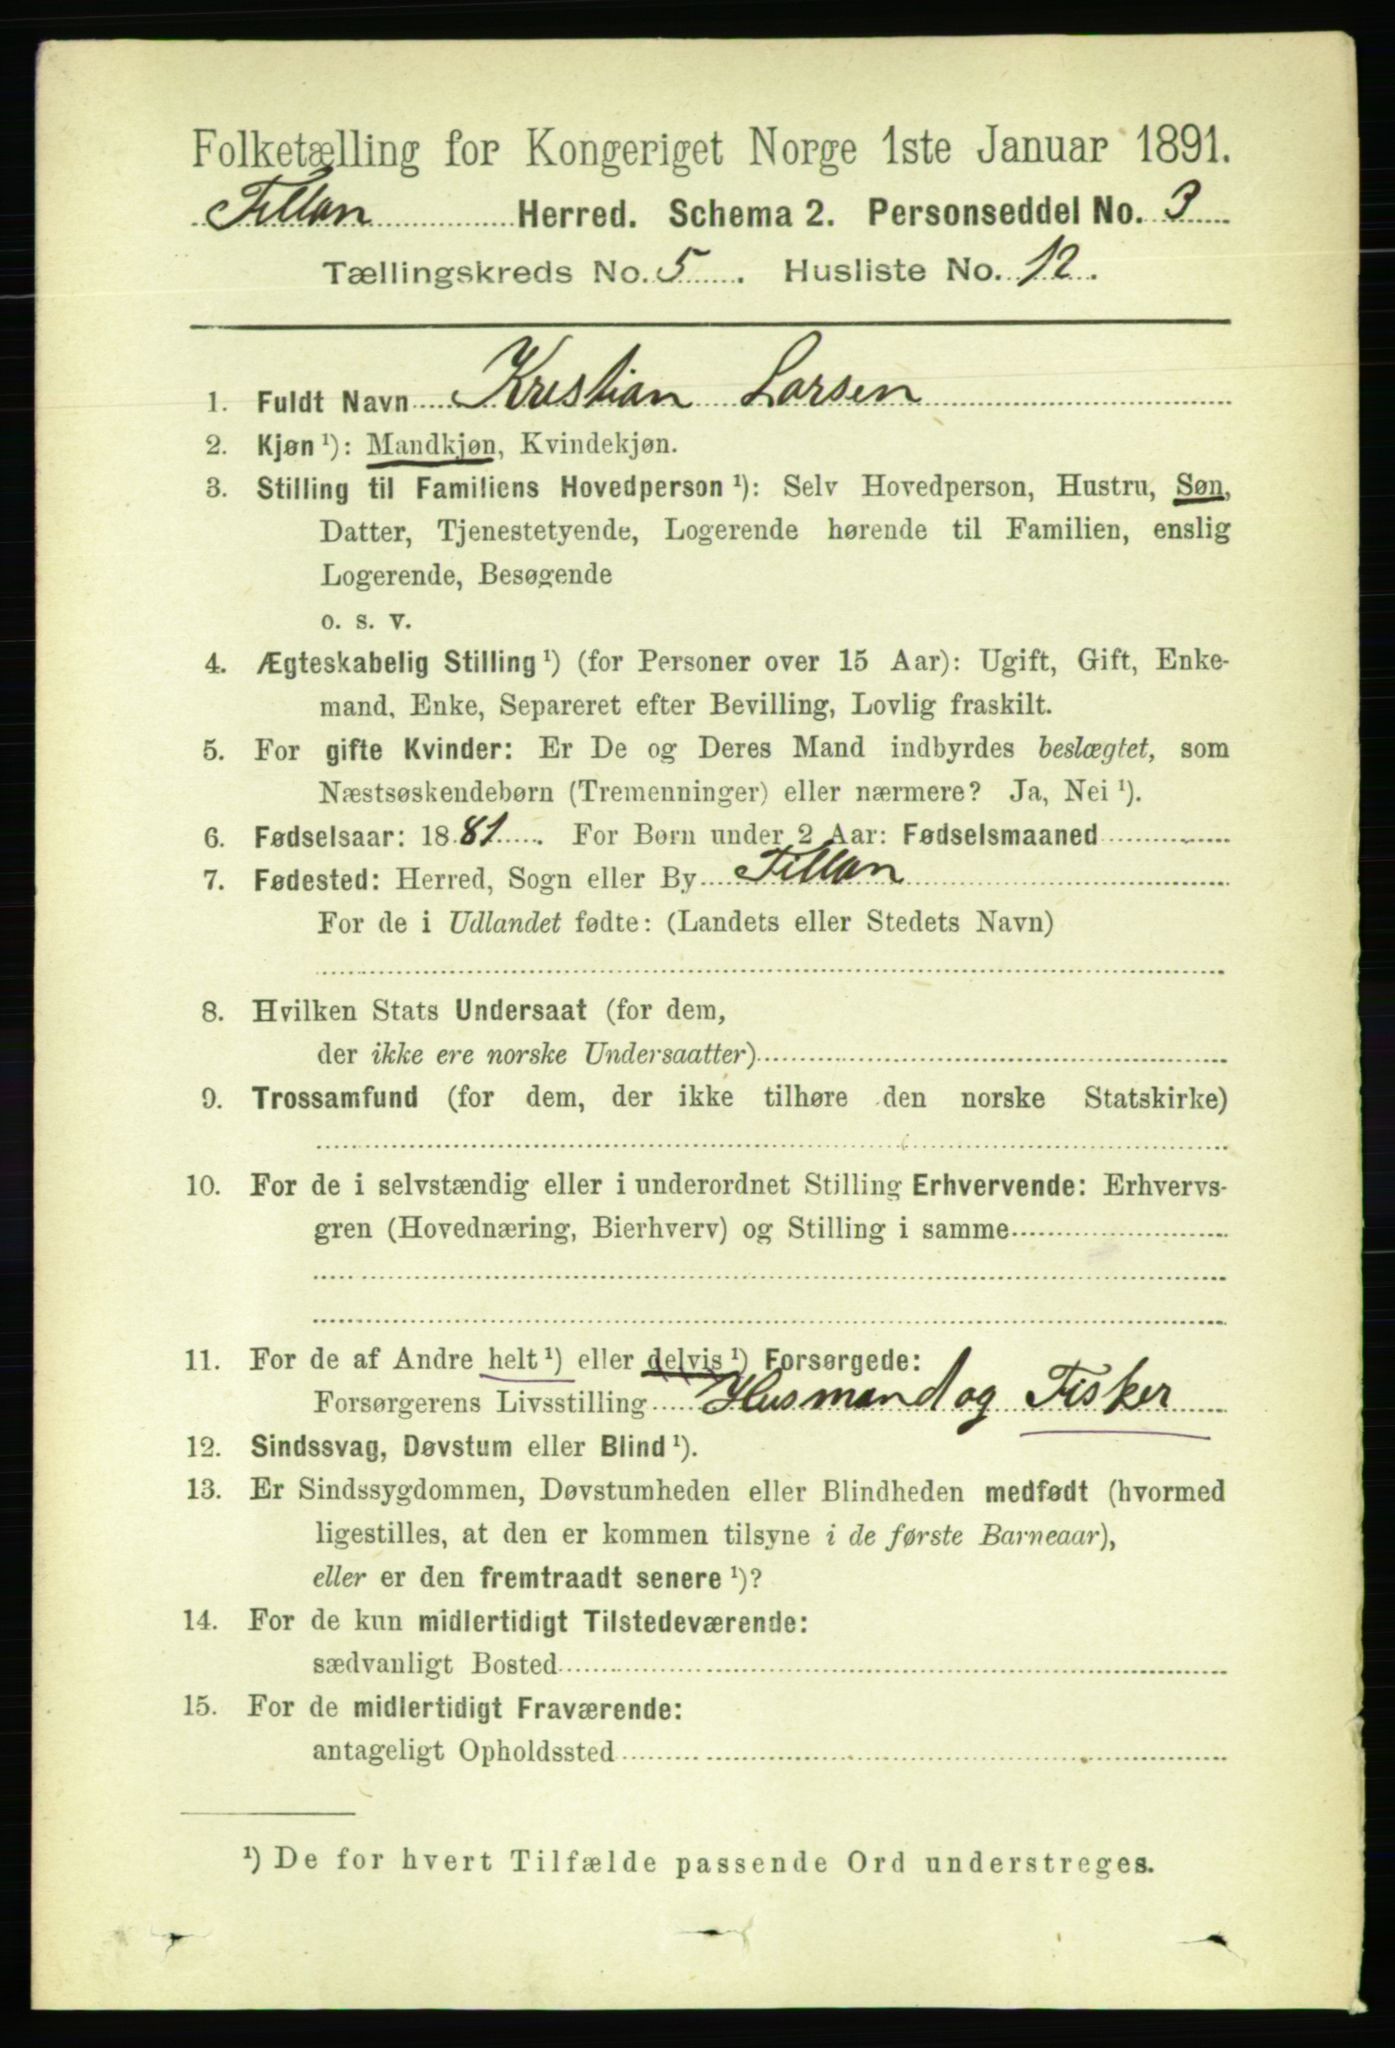 Folketælling for Kongeriget Norge 1ste Januar 1891.
Fillan Herred. Schema 2. Personseddel No. 3
Tællingskreds No. 5. Husliste No. 12.
1. Fuldt Navn Kristian Larsen
2. Kjøn ¹): Mandkjøn, Kvindekjøn.
3. Stilling til Familiens Hovedperson ¹): Selv Hovedperson, Hustru, Søn,
Datter, Tjenestetyende, Logerende hørende til Familien, enslig
Logerende, Besøgende
o. s. v.
4. Ægteskabelig Stilling ¹) (for Personer over 15 Aar): Ugift, Gift, Enke-
mand, Enke, Separeret efter Bevilling, Lovlig fraskilt.
5. For gifte Kvinder: Er De og Deres Mand indbyrdes beslægtet, som
Næstsøskendebørn (Tremenninger) eller nærmere? Ja, Nei ¹).
6. Fødselsaar: 1881. For Børn under 2 Aar: Fødselsmaaned
7. Fødested: Herred, Sogn eller By Fillan
For de i Udlandet fødte: (Landets eller Stedets Navn)
8. Hvilken Stats Undersaat (for dem,
der ikke ere norske Undersaatter)
9. Trossamfund (for dem, der ikke tilhøre den norske Statskirke)
10. For de i selvstændig eller i underordnet Stilling Erhvervende: Erhvervs-
gren (Hovednæring, Bierhverv) og Stilling i samme
11. For de af Andre helt ¹) eller delvis ¹) Forsørgede:
Forsørgerens Livsstilling Husmand og Fisker
12. Sindssvag, Døvstum eller Blind ¹).
13. Er Sindssygdommen, Døvstumheden eller Blindheden medfødt (hvormed
ligestilles, at den er kommen tilsyne i de første Barneaar),
eller er den fremtraadt senere ¹)?
14. For de kun midlertidigt Tilstedeværende:
sædvanligt Bosted
15. For de midlertidigt Fraværende:
antageligt Opholdssted
¹) De for hvert Tilfælde passende Ord understreges.